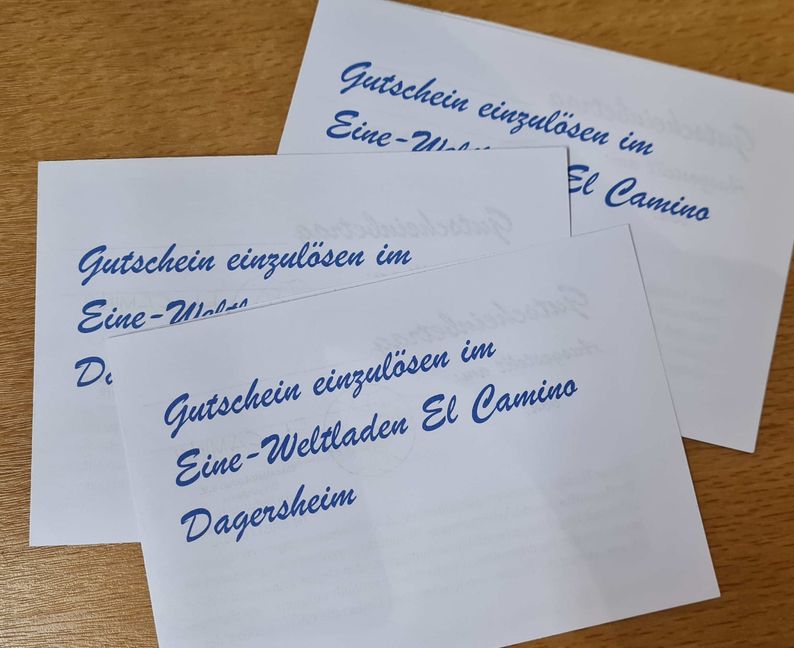 Gutschein einzulösen im
Eine-Welt
El Camino
Gutschein einzulösen im
Eine-Welt
Gutschein einzulösen im
Eine-Weltladen El Camino
Dagersheim